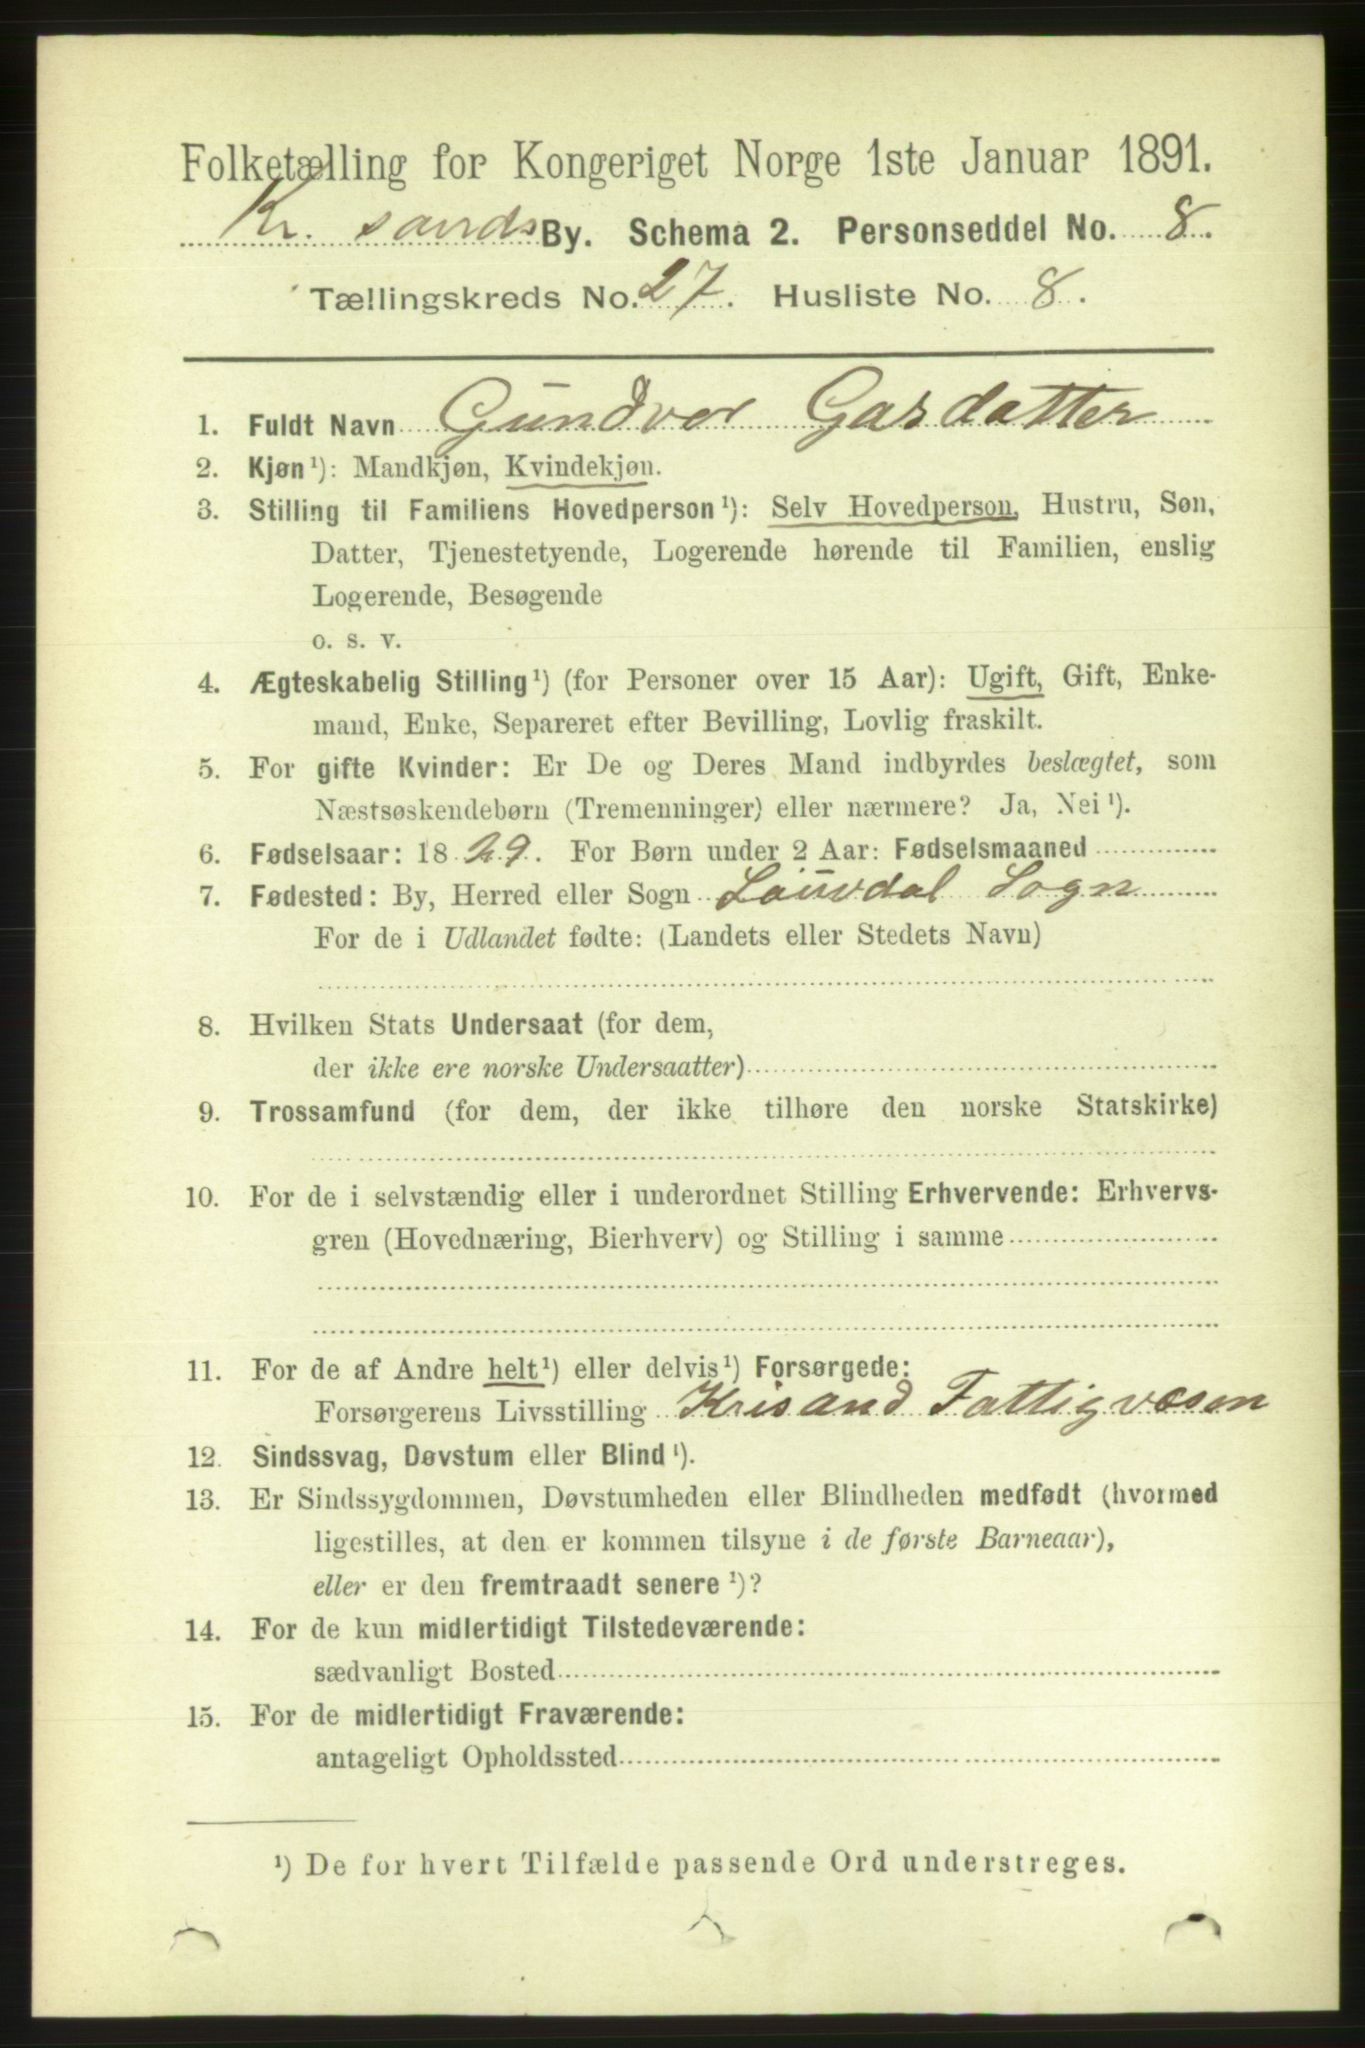 Folketælling for Kongeriget Norge 1ste Januar 1891.
Kr. sands By. Schema 2. Personseddel No. 8.
Tællingskreds No. 27. Husliste No. 8.
1. Fuldt Navn Gundvor Gardatter
2. Kjøn ¹): Mandkjøn, Kvindekjøn.
3. Stilling til Familiens Hovedperson ¹): Selv Hovedperson, Hustru, Søn,
Datter, Tjenestetyende, Logerende hørende til Familien, enslig
Logerende, Besøgende
o. s. v.
4. Ægteskabelig Stilling ¹) (for Personer over 15 Aar): Ugift, Gift, Enke-
mand, Enke, Separeret efter Bevilling, Lovlig fraskilt.
5. For gifte Kvinder: Er De og Deres Mand indbyrdes beslægtet, som
Næstsøskendebørn (Tremenninger) eller nærmere? Ja, Nei ¹).
6. Fødselsaar: 1829. For Børn under 2 Aar: Fødselsmaaned
7. Fødested: By, Herred eller Sogn Lauvdal Sogn
For de i Udlandet fødte: (Landets eller Stedets Navn)
8. Hvilken Stats Undersaat (for dem,
der ikke ere norske Undersaatter)
9. Trossamfund (for dem, der ikke tilhøre den norske Statskirke)
10. For de i selvstændig eller i underordnet Stilling Erhvervende: Erhvervs-
gren (Hovednæring, Bierhverv) og Stilling i samme
11. For de af Andre helt ¹) eller delvis ¹) Forsørgede:
Forsørgerens Livsstilling Krisand Fattigvæsen
12. Sindssvag, Døvstum eller Blind ¹).
13. Er Sindssygdommen, Døvstumheden eller Blindheden medfødt (hvormed
ligestilles, at den er kommen tilsyne i de første Barneaar),
eller er den fremtraadt senere ¹)?
14. For de kun midlertidigt Tilstedeværende:
sædvanligt Bosted
15. For de midlertidigt Fraværende:
antageligt Opholdssted
¹) De for hvert Tilfælde passende Ord understreges.